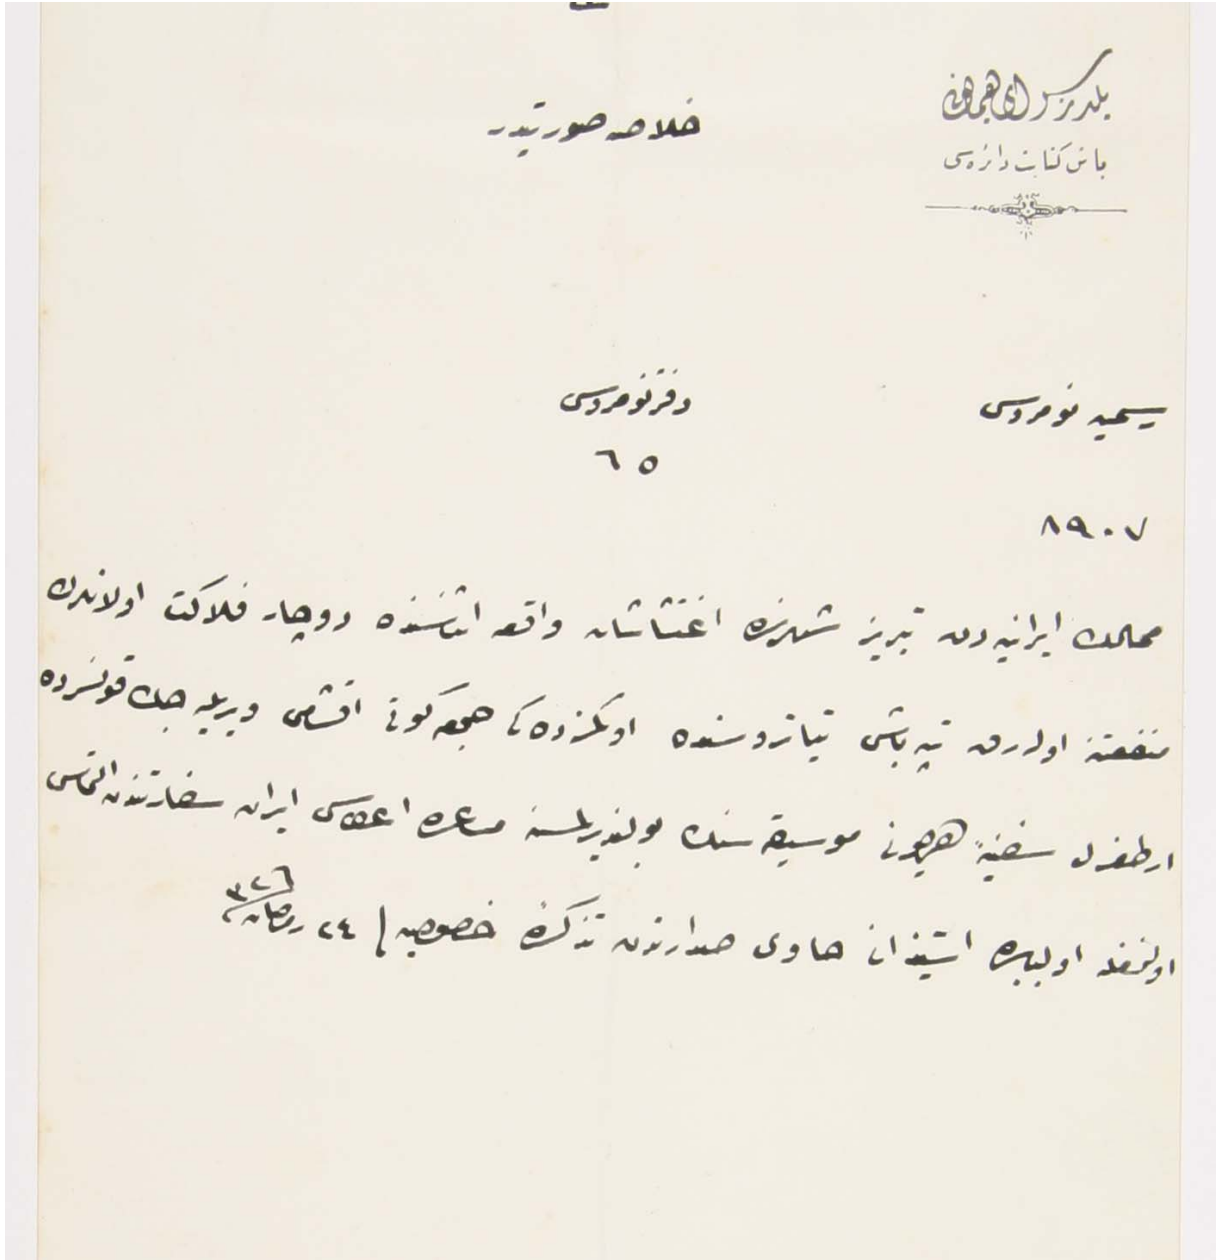 یلدیز سرای همایونی
باش کتابت دائره‌سی
خلاصه صورتیدر
رسمیه نومروسی
دفتر نومروسی
٦٥
٨٩٠٧
ممالك ایرانیه دن تبریز شهرنده اغتشاشات واقعه اثناسنده دوچار فلاکت اولانلرك
منفعتنه اوله رق تپه باشی تیاتروسنده اوکمزده کی جمعه کونی اقشامی ویریله جك قونسرده
ارطغرل سفینهٔ همایونی موسیقه سنك بولندیرلمسنه مساعده اعطاسی ایران سفارتندن التماس
اولنمغله اولبابده استیذانی حاوی صدارتدن تذکرهٔ خصوصیه ٢٤ رمضان ٣٢٦